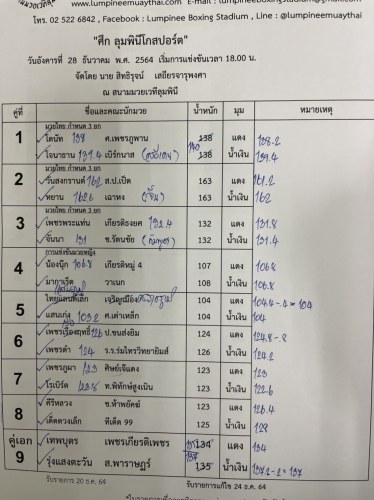 www.lumpineemuaythai.com E-mail : lumpineeboxingstadium@
โทร. 02 522 6842 , Facebook : Lumpinee Boxing Stadium , Line : @lumpineemuaythai
"ศึก ลุมพินีโกสปอร์ต"
วันอังคารที่ 28 ธันวาคม พ.ศ. 2564 เริ่มการแข่งขันเวลา 18.00 น.
จัดโดย นาย สิทธิรุจน์ เสถียรจารุพงศา
ณ สนามมวยเวทีลุมพินี
คู่ที่ ชื่อและคณะนักมวย น้ำหนัก มุม หมายเหตุ
มวยไทย กำหนด 3 ยก
1 โตนัท 138 ศ.เพชรภูพาน 138 แดง 138.2
โจนาธาน 139.4 เบิร์กนาส 140 138 น้ำเงิน 139.4
มวยไทย กำหนด 3 ยก
2 วันสงกรานต์ 162 ส.ป.เป็ด 163 แดง 161.2
หยาน 162 เฉาหง 163 น้ำเงิน 162
มวยไทย กำหนด 3 ยก
3 เพชรพระแท่น เกียรติธงยศ 132.4 132 แดง 131.8
จีนนา 131 ช.รัตนชัย 132 น้ำเงิน 131.4
การแข่งขันมวยหญิง
4 น้องนุ๊ก 106.8 เกียรติหมู่ 4 107 แดง 106.8
มากาเร็ต วาเนก 108 น้ำเงิน 106.8
5 ไทยแลนด์เล็ก เจริญเมือง 104 แดง 104.4 - .4 = 104
แสนเก่ง 103.2 ศ.เต่าเหล็ก 104 น้ำเงิน 104
6 เพชรเรืองฤทธิ์ 126 ป.ขนส่งยิม 124 แดง 124.8 - .8
เพชรดำ 124 ร.ร.ร่มไทรวิทยายิมส์ 126 น้ำเงิน 124.2
7 เพชรภูผา 123 ศิษย์เจ๊แดง 123 แดง 123
โรเบิร์ต ท.พิทักษ์สูงเนิน 123 น้ำเงิน 122.6
8 ศิริหลวง ช.ห้าพยัคฆ์ 123 แดง 123.4
เด็ดดวงเล็ก ทีเด็ด 99 125 น้ำเงิน
คู่เอก เทพบุตร เพชรเกียรติเพชร 134 แดง 134
9 รุ่งแสงตะวัน ส.พาราษฎร์ 137 135 น้ำเงิน 137.2 - .2 = 137
วันรายการ 20 ธ.ค. 64 วันรายการแก้ไข 24 ธ.ค. 64